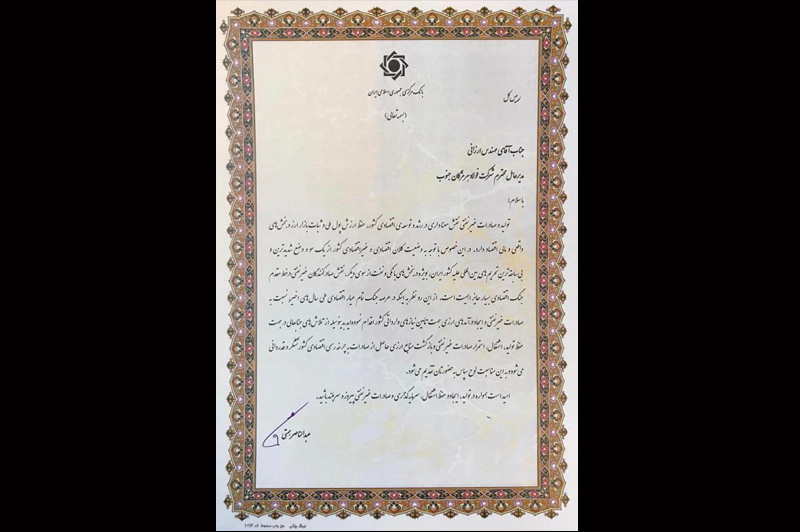 بانک مرکزی جمهوری اسلامی ایران
رییس کل
(بسمه تعالی)
جناب آقای مهندس ارزانی
مدیرعامل محترم شرکت فولاد هرمزگان جنوب
با سلام؛
تولید و صادرات غیرنفتی نقش معناداری در رشد و توسعه‌ی اقتصادی کشور، حفظ ارزش پول ملی و ثبات بازار ارز و بخش‌های
واقعی و مالی اقتصاد دارد. در این خصوص با توجه به وضعیت کلان اقتصادی و غیراقتصادی کشور از یک سو و وضع شدیدترین و
بی سابقه ترین تحریم های بین المللی علیه کشور ایران، بویژه در بخش‌های بانکی و نفت از سوی دیگر، نقش صادرکنندگان غیرنفتی در خط مقدم
جنگ اقتصادی بسیار حائز اهمیت است. از این رو نظر به اینکه در عرصه جنگ تمام عیار اقتصادی طی سال‌های اخیر، نسبت به
صادرات غیرنفتی و ایجاد درآمدهای ارزی جهت تامین نیازهای وارداتی کشور اقدام نموده‌اید بدینوسیله از تلاش‌های جنابعالی در جهت
حفظ تولید، اشتغال، استمرار صادرات غیرنفتی و بازگشت منابع ارزی حاصل از صادرات به چرخه رسمی اقتصادی کشور تشکر و قدردانی
می‌شود و به این مناسبت لوح سپاس به حضورتان تقدیم می‌شود.
امید است همواره در تولید، ایجاد و حفظ اشتغال، سرمایه‌گذاری و صادرات غیرنفتی پیروز و سربلند باشید.
عبدالناصر همتی